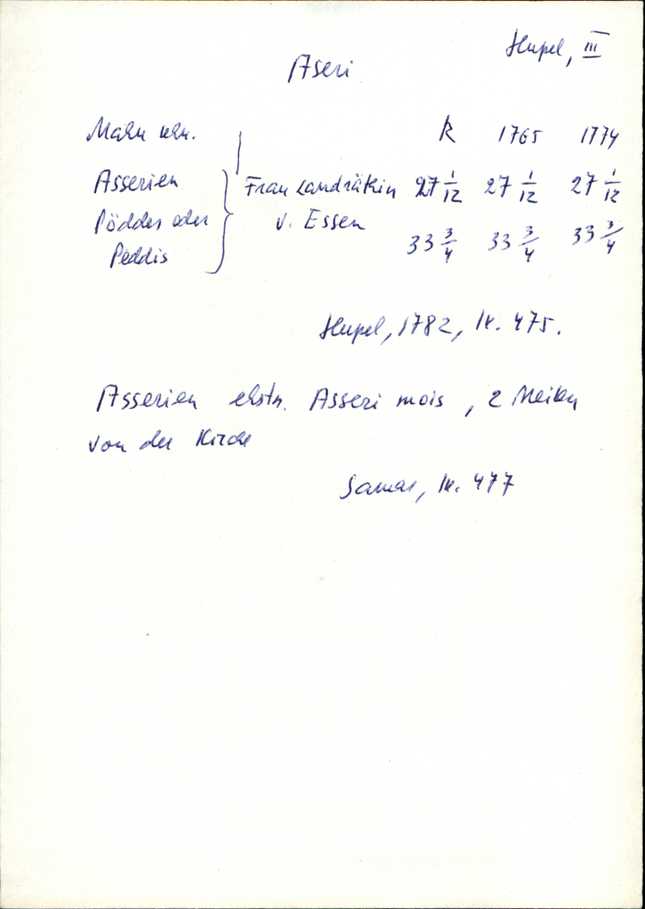 Hupel, III
Aseri
Mahu khn. R 1765 1774
Asserien } Frau Landräthin 27 1/12 27 1/12 27 1/12
Pöddes oder v. Essen 33 3/4 33 3/4 33 3/4
Peddis
Hupel, 1782, lk. 475.
Asserien ehstn. Asseri mois, 2 Meilen
von der Kirche
Samas, lk. 477